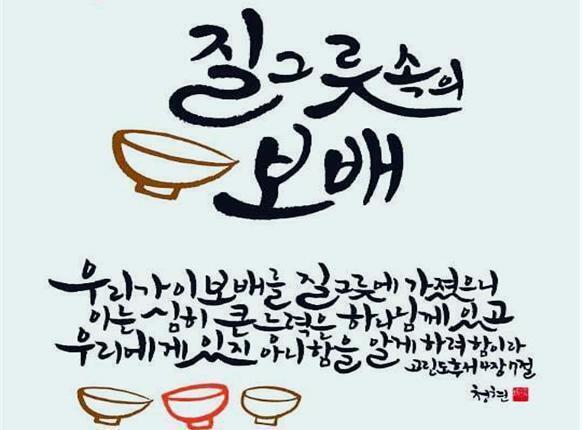 질그릇 속의
보배
우리가 이 보배를 질그릇에 가졌으니
이는 심히 큰 능력은 하나님께 있고
우리에게 있지 아니함을 알게 하려 함이라
고린도후서 4장 7절
청현